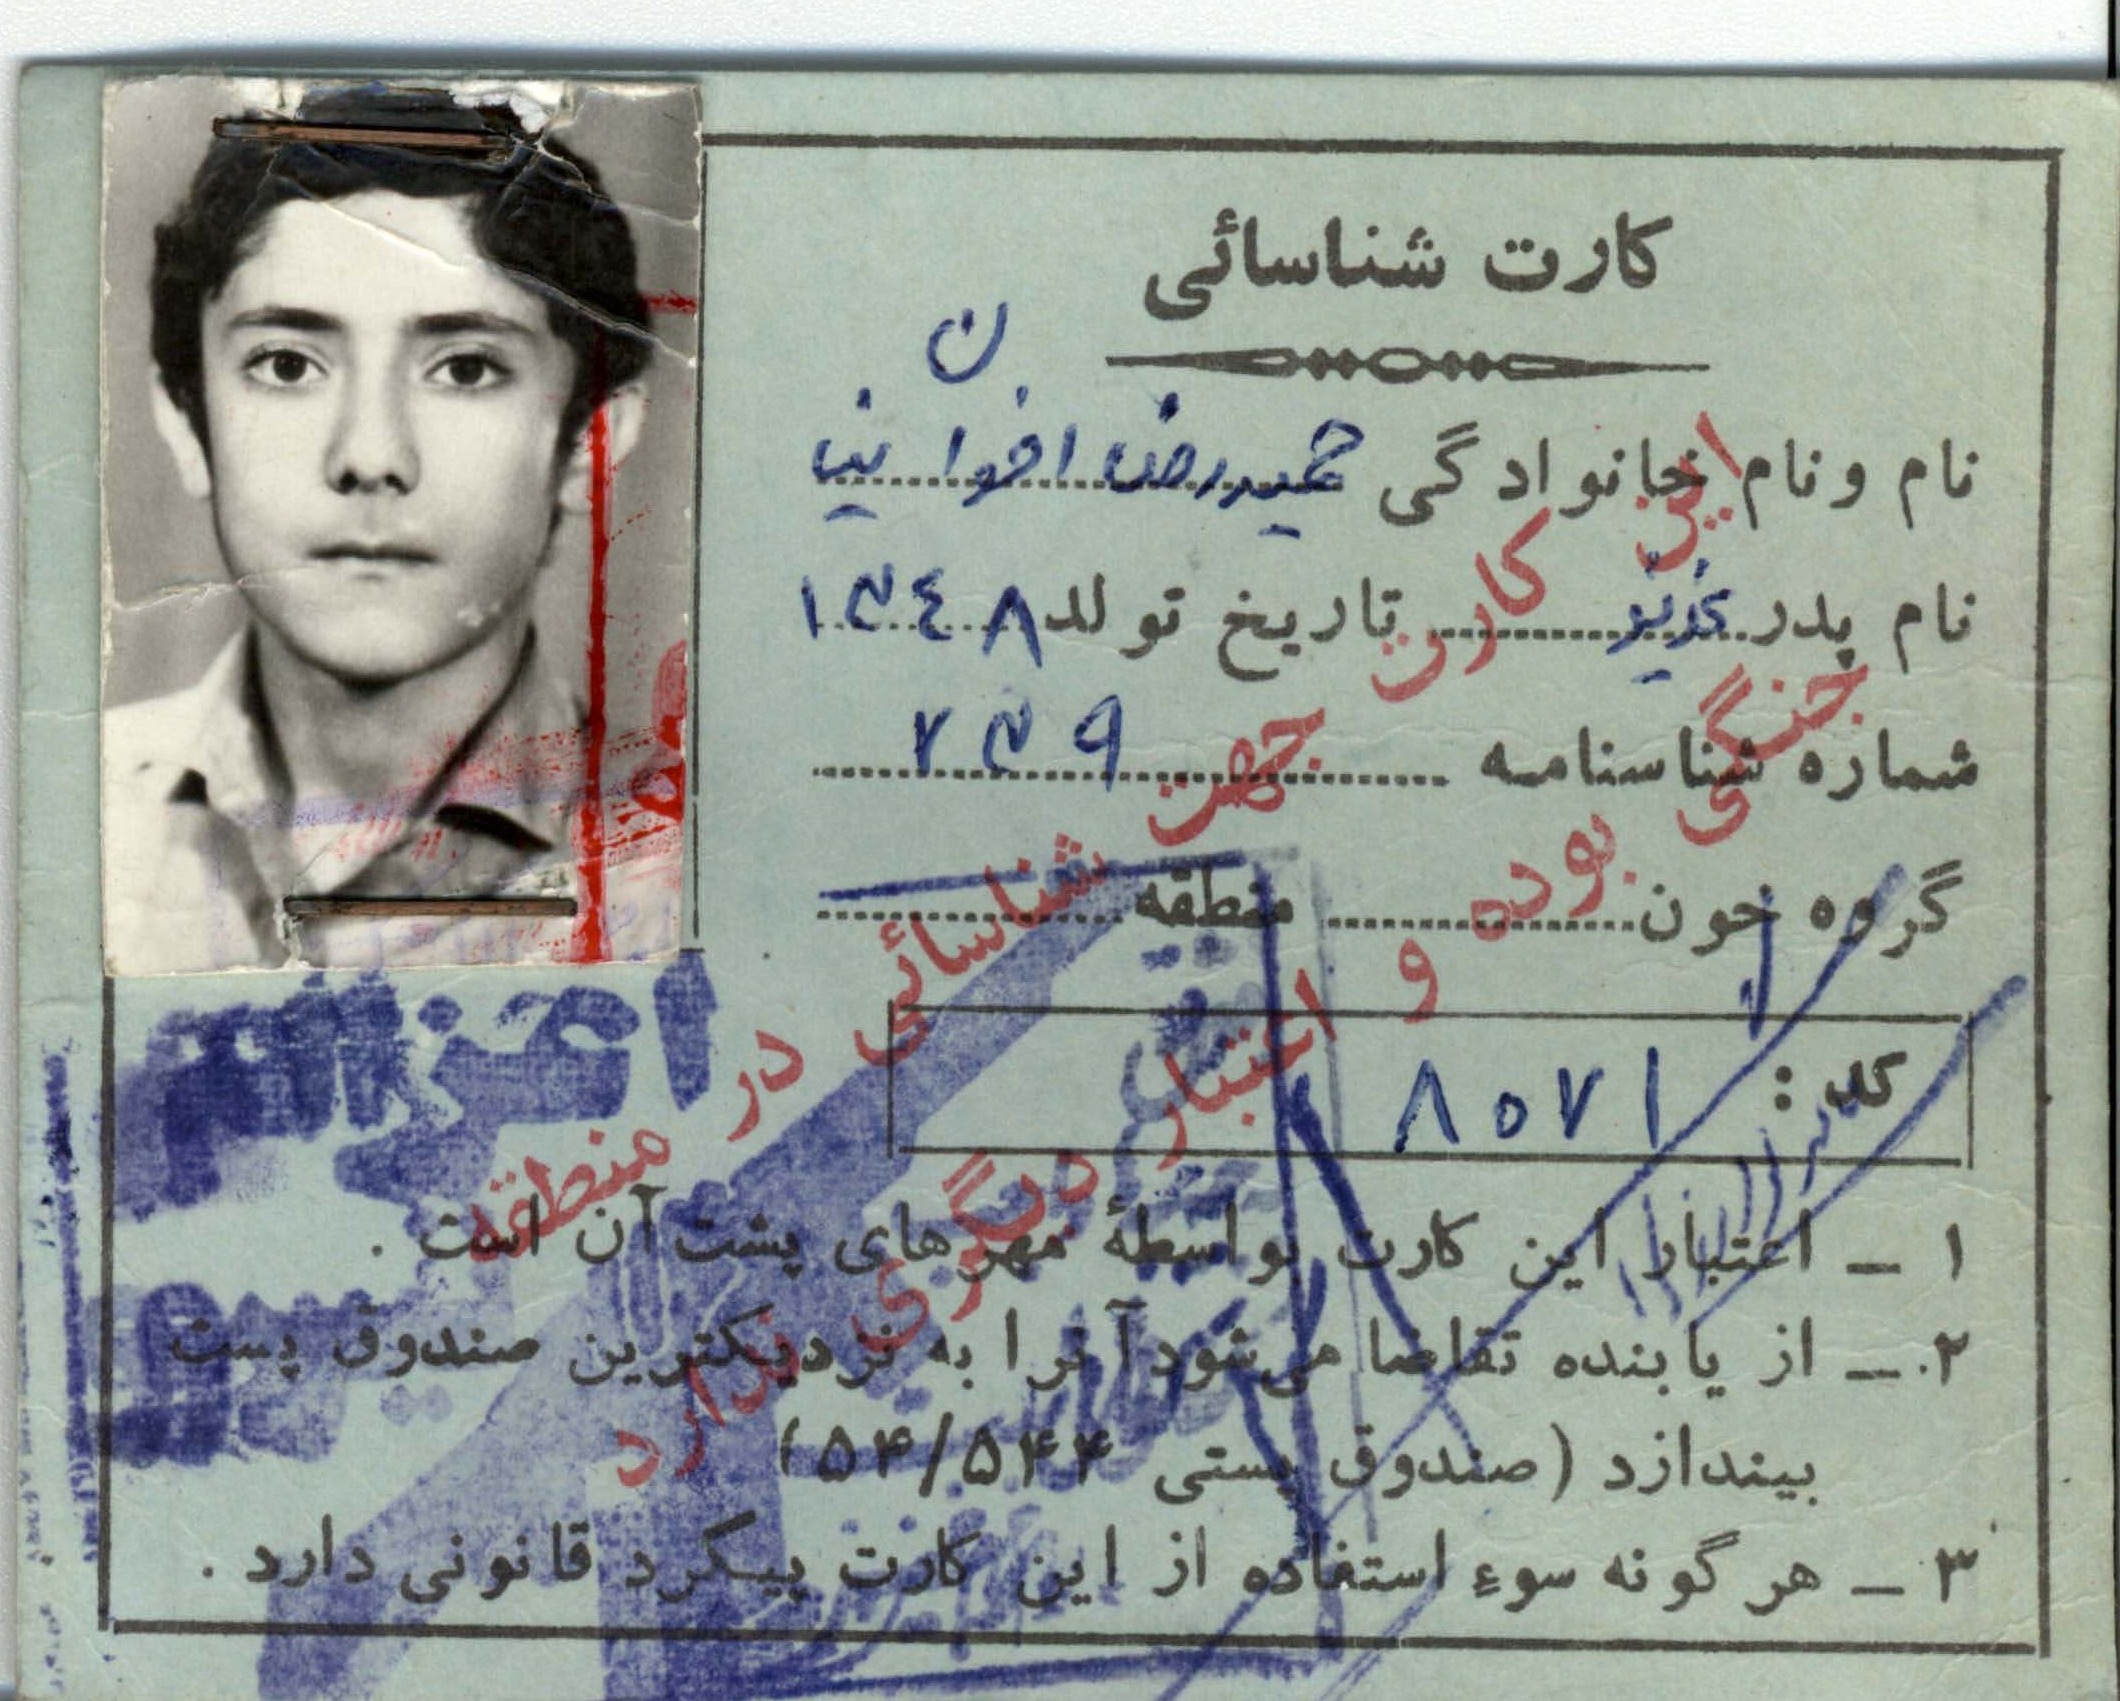 کارت شناسائی
نام و نام خانوادگی حمیدرضا
نام پدر عزیز تاریخ تولد ۱۳۴۸
شماره شناسنامه ۲۳۹
گروه خون منطقه
کد: ۸۰۷۱
۱ ـ اعتبار این کارت بواسطهٔ مهرهای پشت آن است .
۲ ـ از یابنده تقاضا می‌شود آنرا به نزدیکترین صندوق پست
بیندازد (صندوق پستی ۵۴/۵۴۴)
۳ ـ هر گونه سوء استفاده از این کارت پیگرد قانونی دارد .
این کارت جهت شناسائی در منطقه
جنگی بوده و اعتبار دیگری ندارد
اعزام